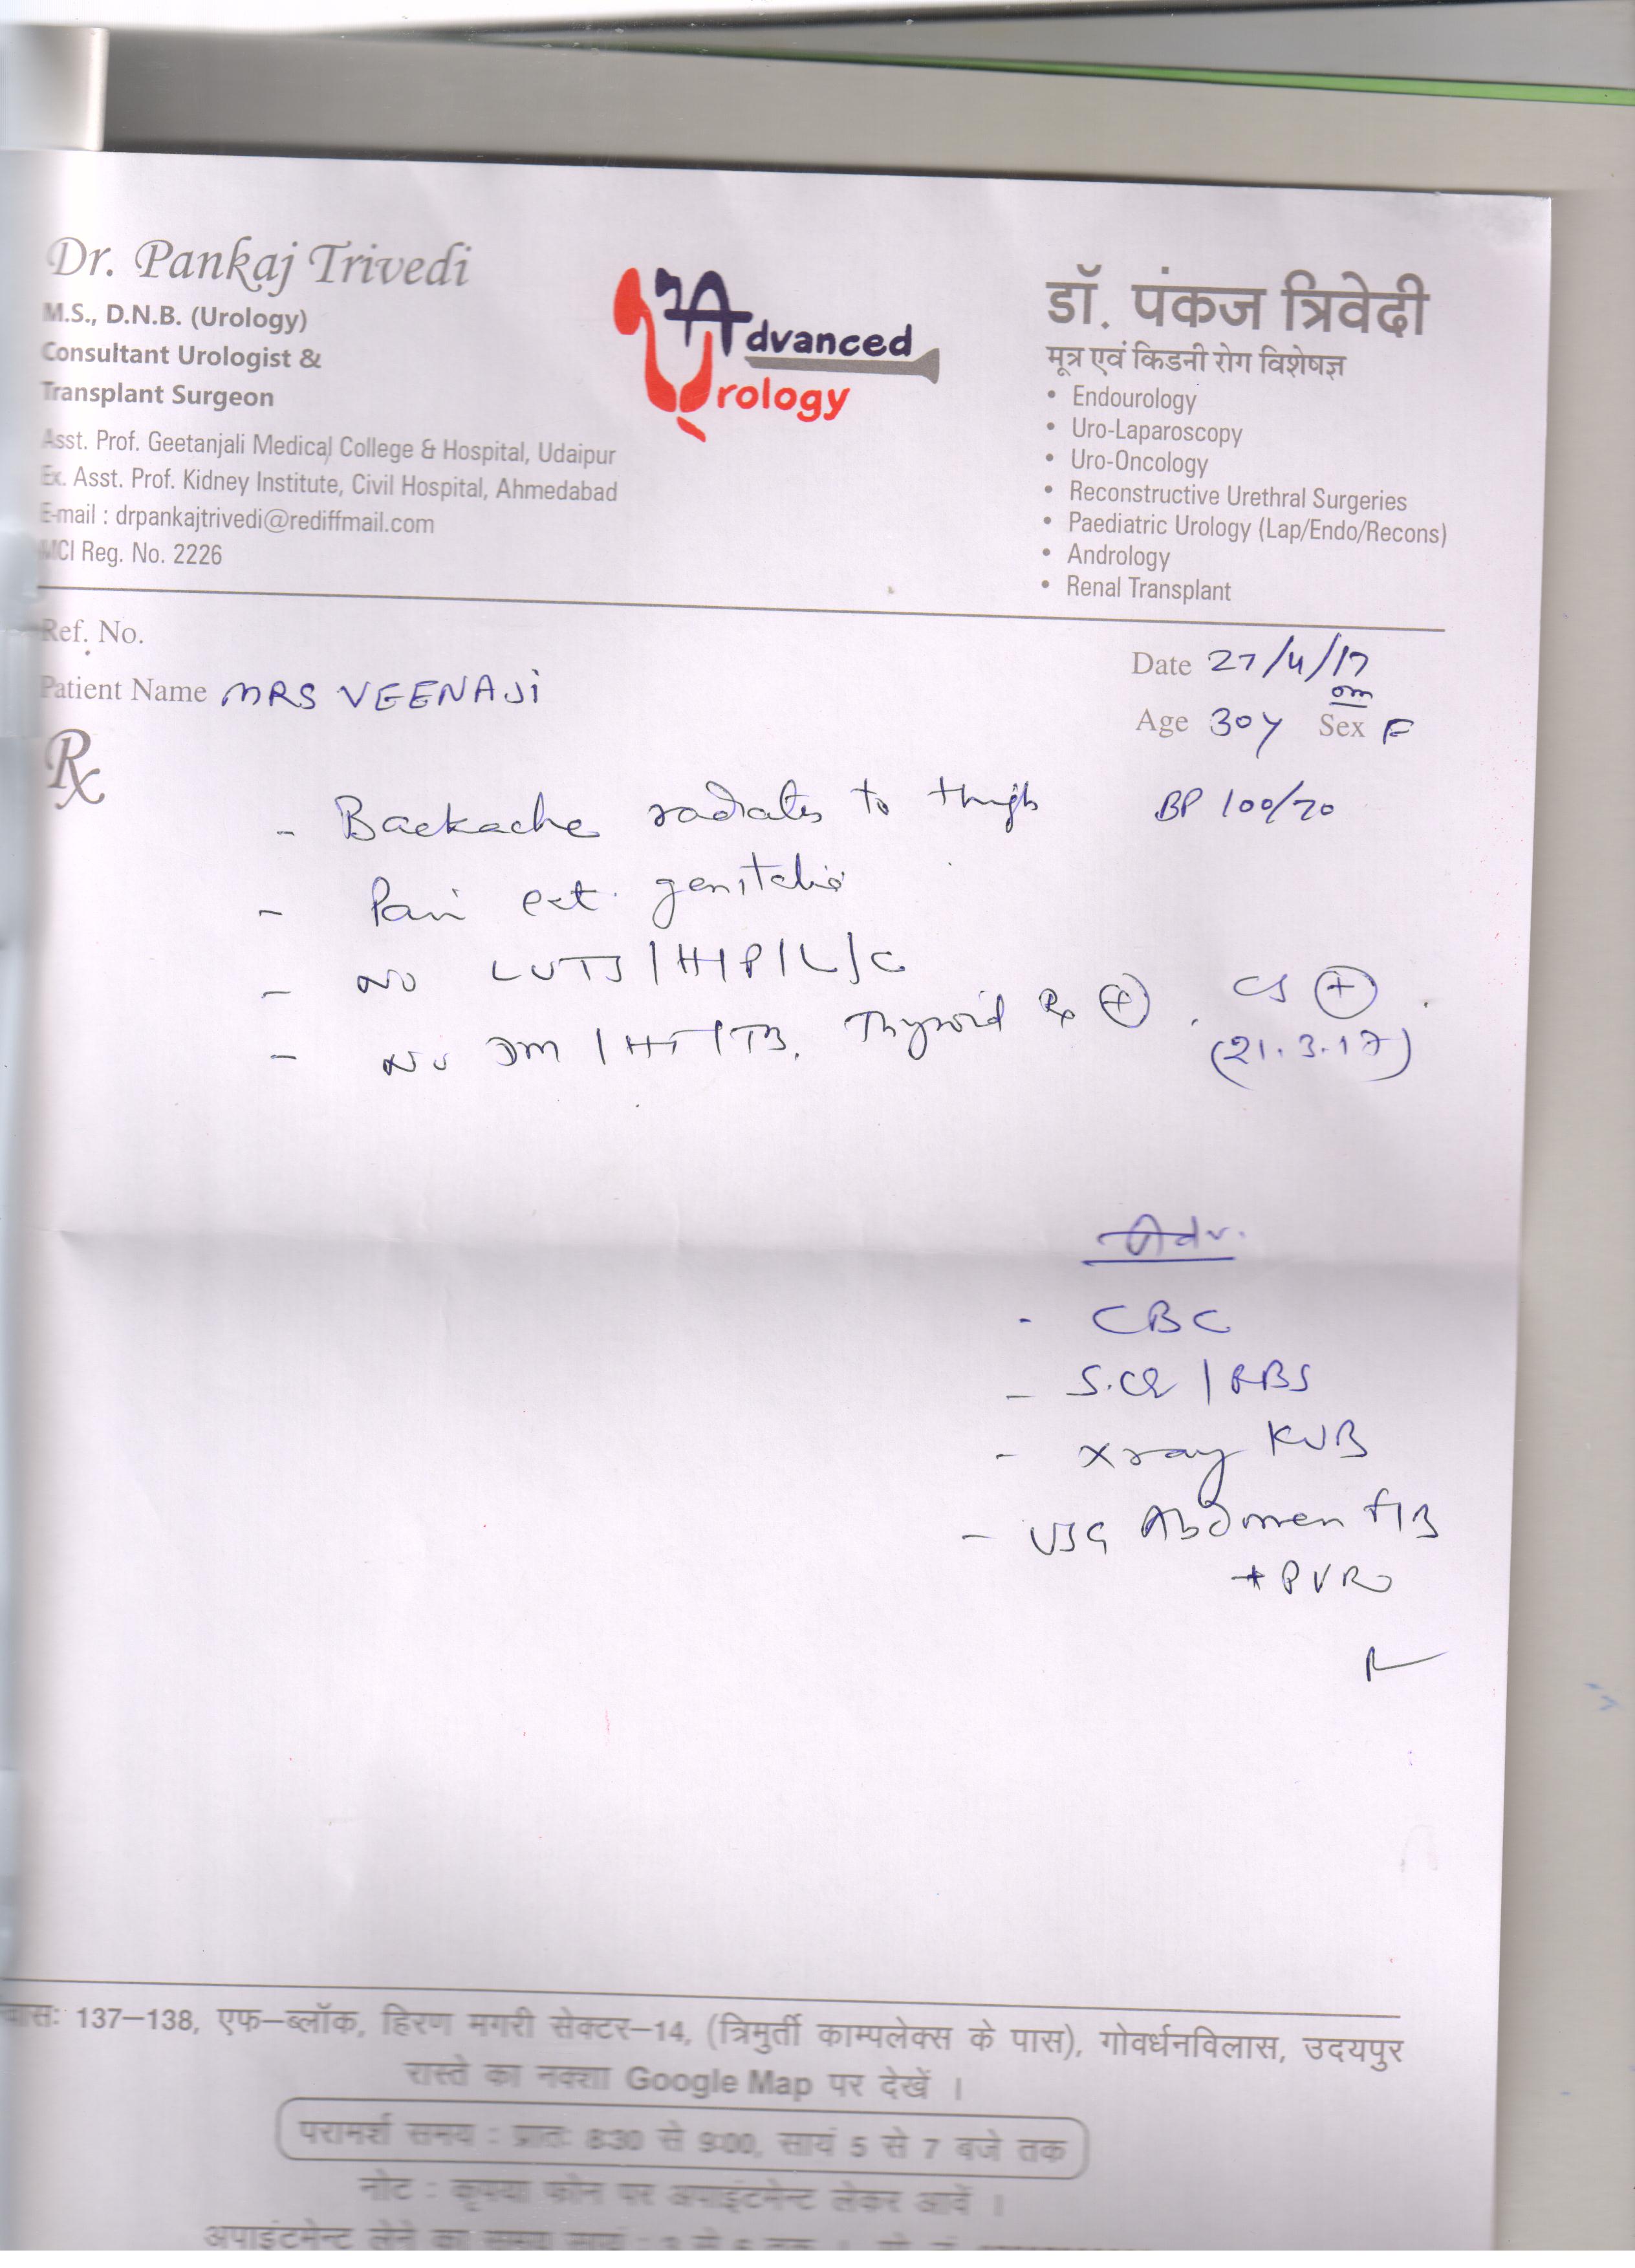 Dr. Pankaj Trivedi
M.S., D.N.B. (Urology)
Consultant Urologist &
Transplant Surgeon
Asst. Prof. Geetanjali Medical College & Hospital, Udaipur
Ex. Asst. Prof. Kidney Institute, Civil Hospital, Ahmedabad
E-mail : drpankajtrivedi@rediffmail.com
MCI Reg. No. 2226
Advanced
Urology
डॉ. पंकज त्रिवेदी
मूत्र एवं किडनी रोग विशेषज्ञ
• Endourology
• Uro-Laparoscopy
• Uro-Oncology
• Reconstructive Urethral Surgeries
• Paediatric Urology (Lap/Endo/Recons)
• Andrology
• Renal Transplant
Ref. No.
Date 27/4/17
Patient Name MRS VEENAJi
om
Age 30y Sex F
Rx
- Backache radiates to thigh
BP 100/70
- Pain ext. genitalia
- No LUTS/H/P/L/C
- No DM/HT/TB, Thyroid Rx (+), CS (+)
(21.3.17)
Adv.
- CBC
- S.Cr / RBS
- Xray KUB
- USG Abdomen F/B
+ PVR
137–138, एफ–ब्लॉक, हिरण मगरी सेक्टर–14, (त्रिमुर्ती काम्पलेक्स के पास), गोवर्धनविलास, उदयपुर
रास्ते का नक्शा Google Map पर देखें ।
परामर्श समय : प्रातः 8:30 से 9:00, सायं 5 से 7 बजे तक
नोट : कृपया फोन पर अपाइंटमेन्ट लेकर आवें ।
अपाइंटमेन्ट लेने का समय सायं :